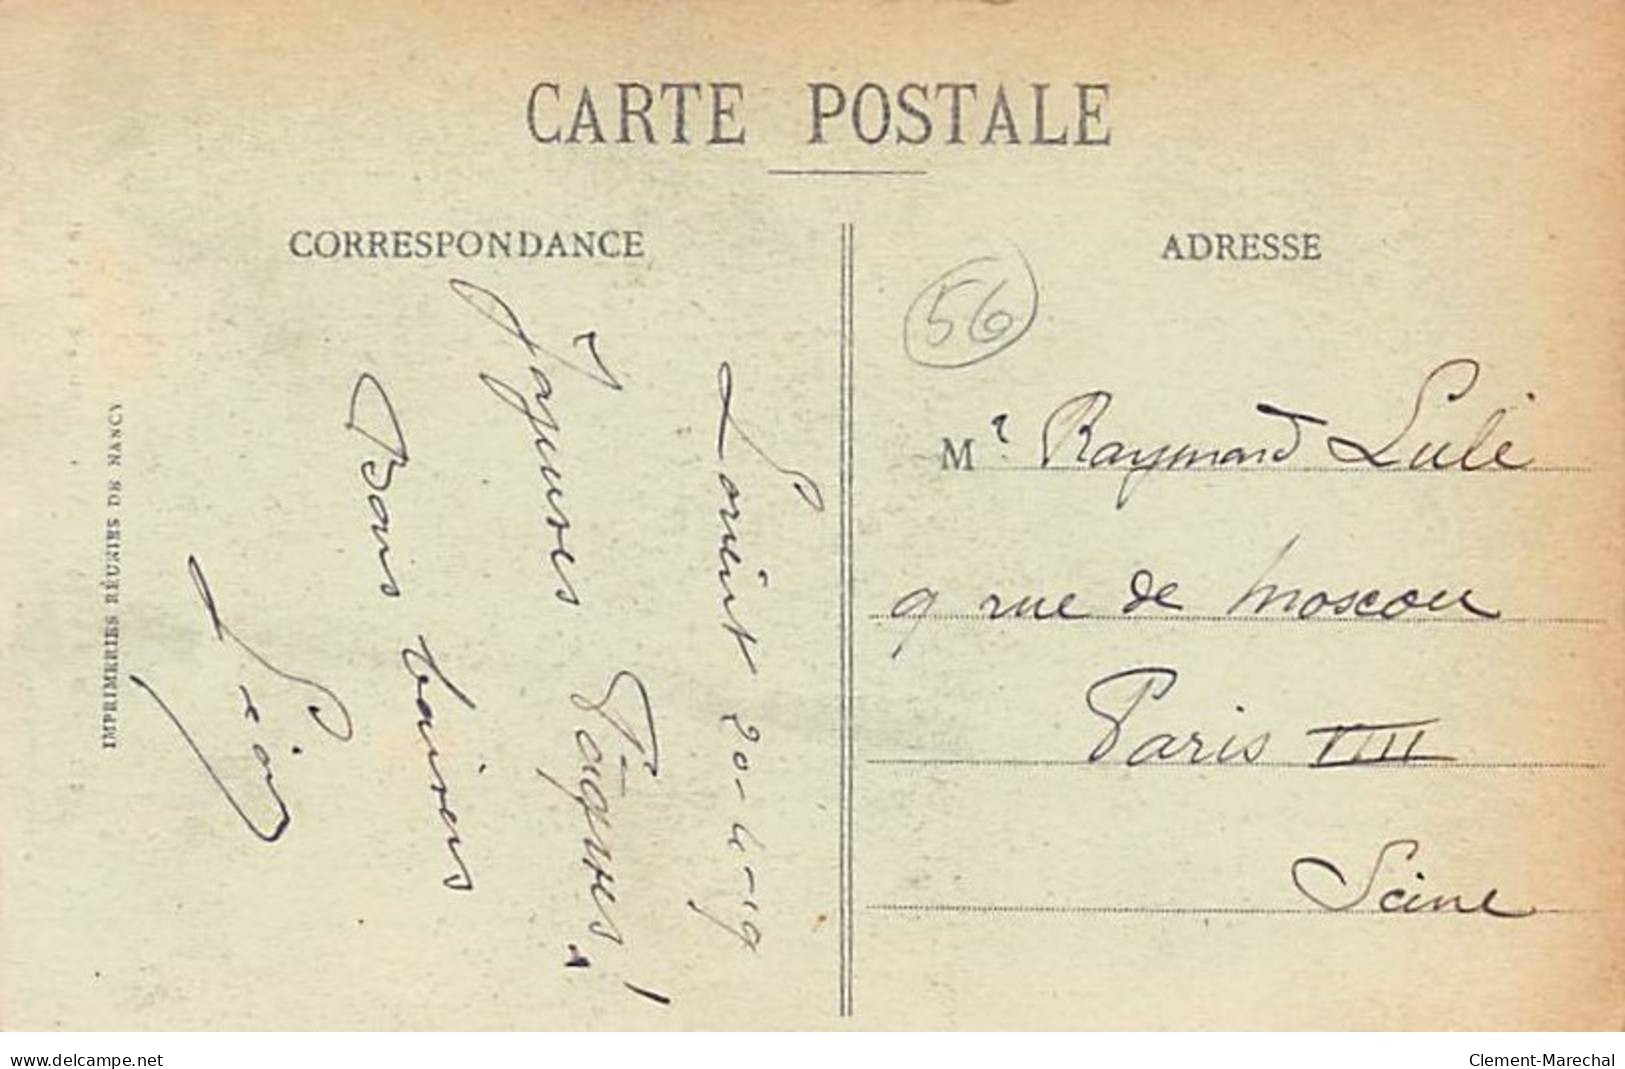 CARTE POSTALE
CORRESPONDANCE
ADRESSE
56
Lorient 20-4-19
Joyeuses Pâques!
Bons baisers
Léon
Mr Raymond Lulé
9 rue de Moscou
Paris VIII
Seine
IMPRIMERIES RÉUNIES DE NANCY
delcampe.net
Clement-Marechal